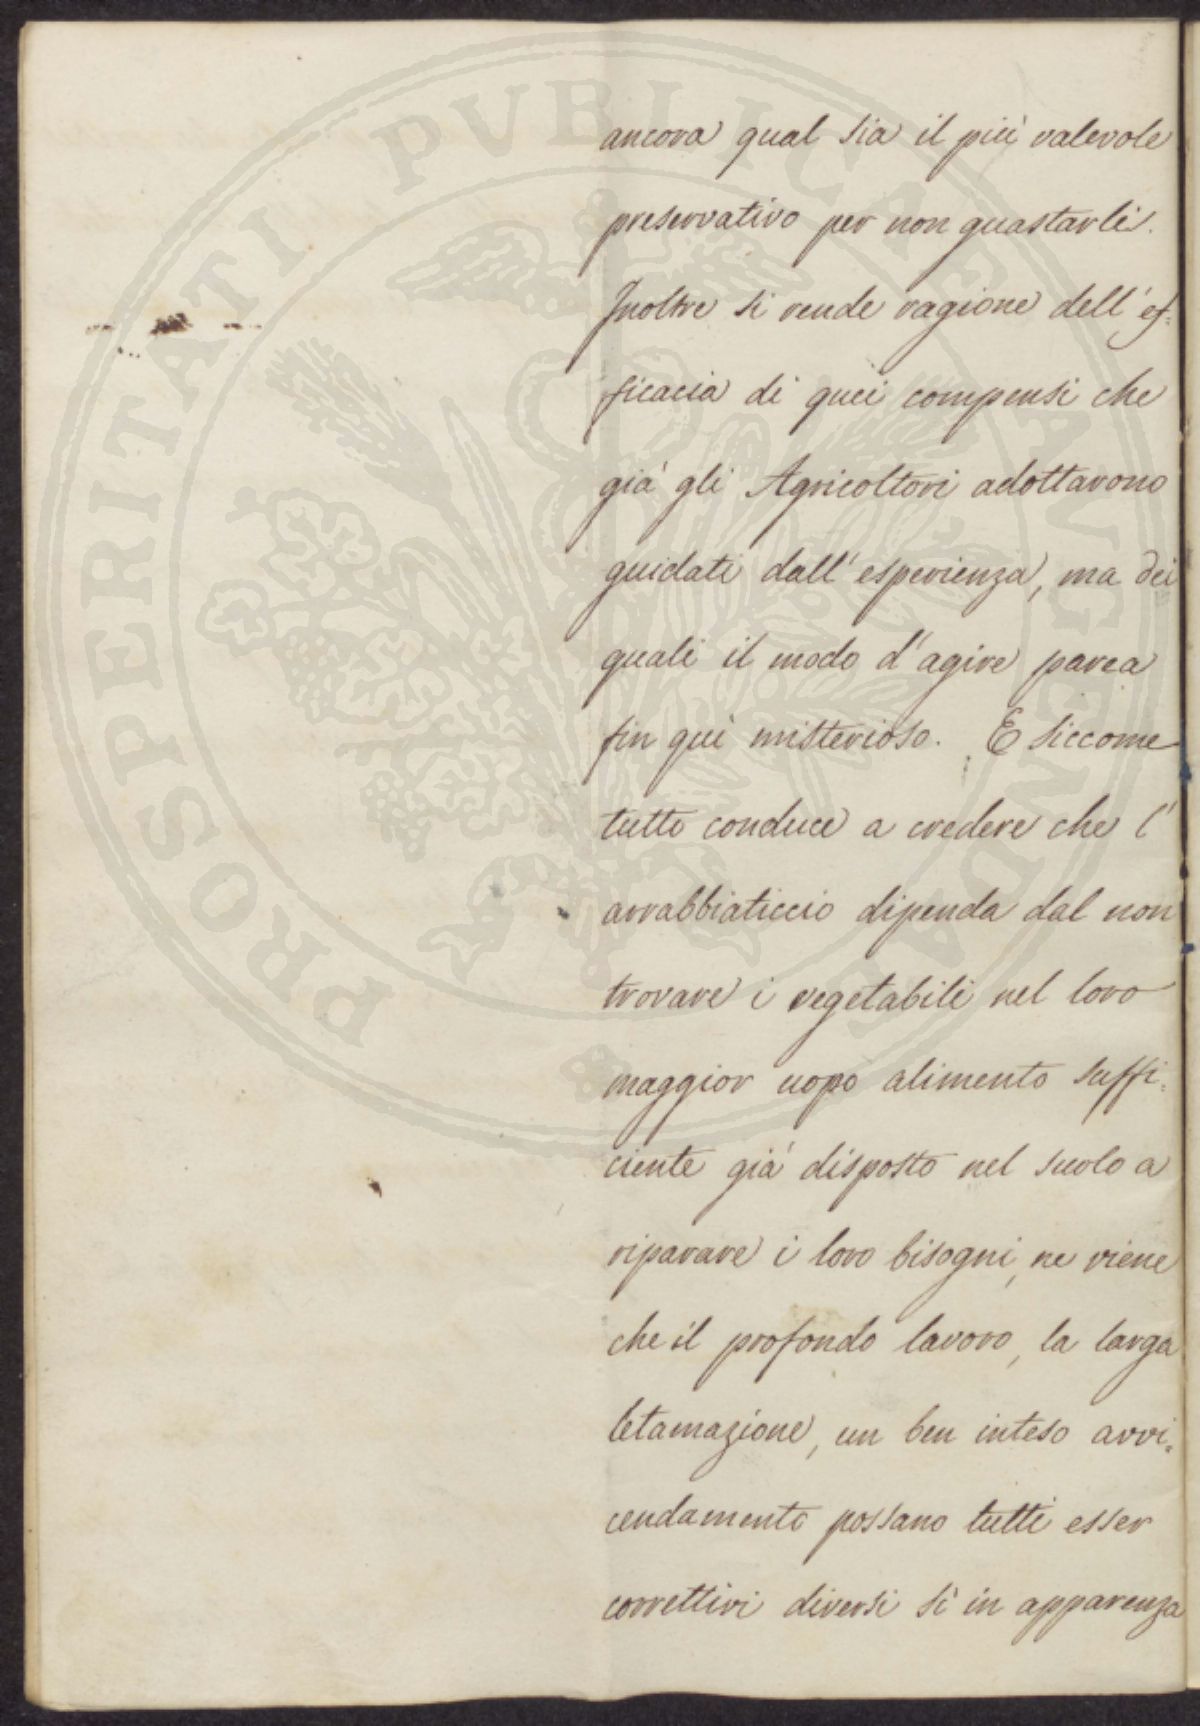 ancora qual sia il più valevole
preservativo per non guastarli.
Inoltre si rende ragione dell'ef-
ficacia di quei compensi che
già gli Agricoltori adottarono
guidati dall'esperienza, ma dei
quali il modo d'agire parea
fin qui misterioso. E siccome
tutto conduce a credere che l'
arrabbiaticcio dipenda dal non
trovare i vegetabili nel loro
maggior uopo alimento suffi-
ciente già disposto nel suolo a
riparare i loro bisogni, ne viene
che il profondo lavoro, la larga
letamazione, un ben inteso avvi-
cendamento possano tutti esser
correttivi diversi sì in apparenza
PROSPERITATI PVBLICAE AVGENDAE